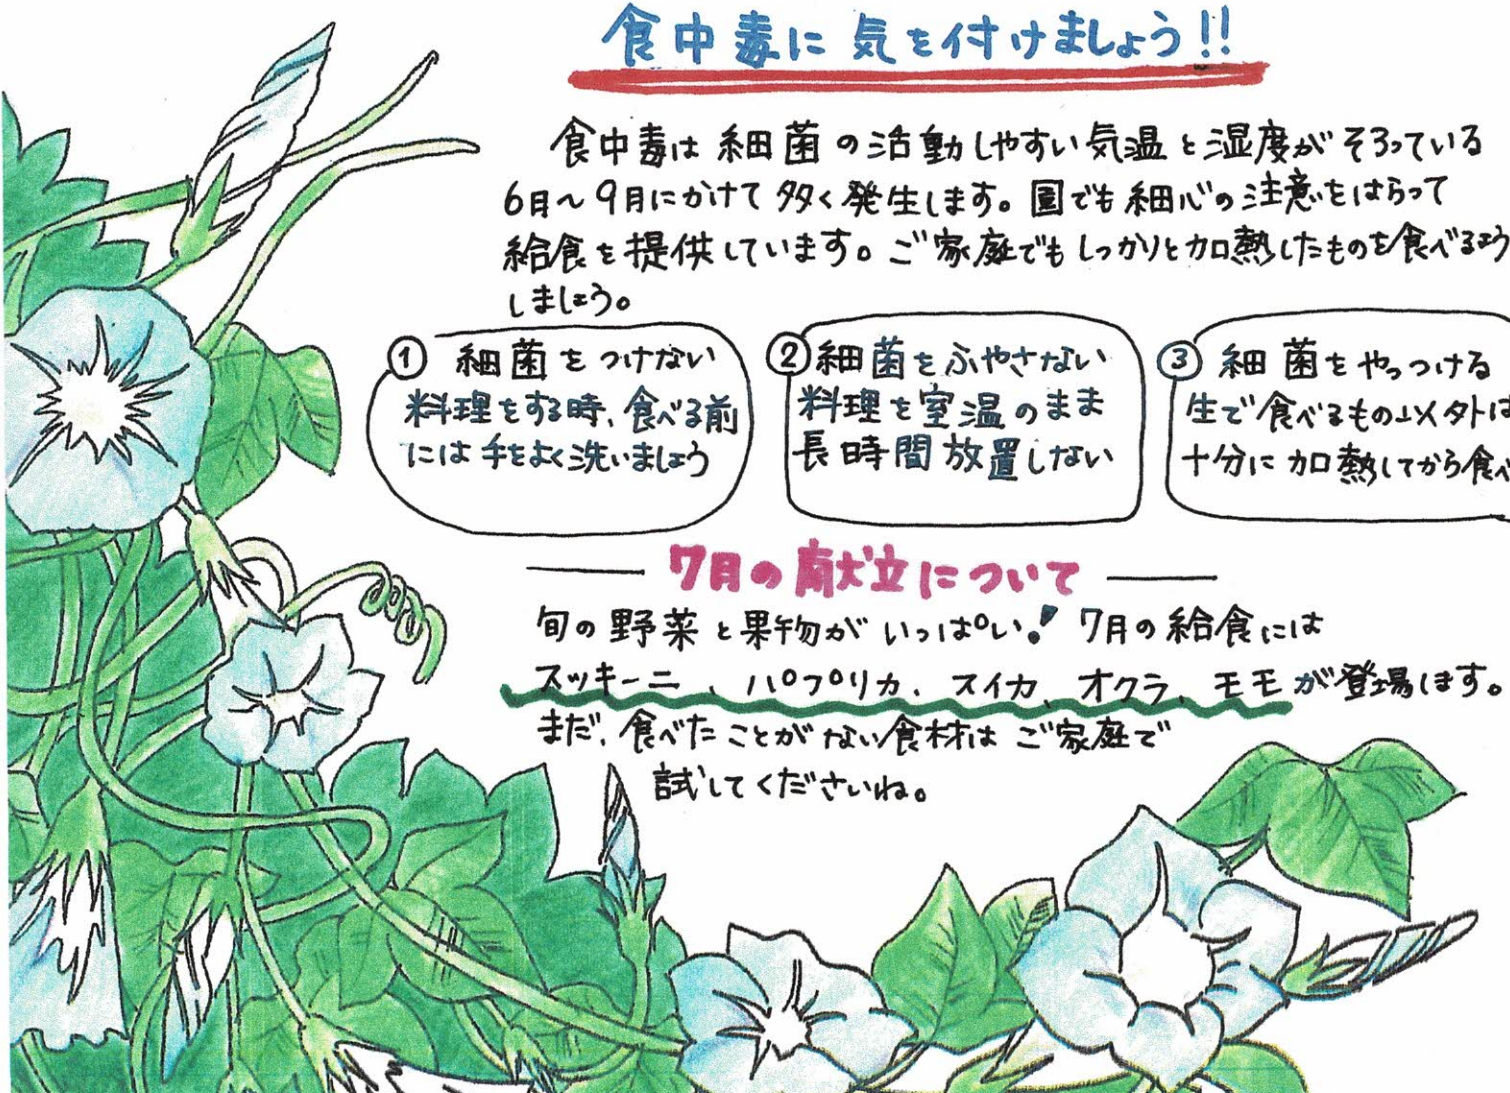 食中毒に気を付けましょう!!
食中毒は細菌の活動しやすい気温と湿度がそろっている
6月〜9月にかけて多く発生します。園でも細心の注意をはらって
給食を提供しています。ご家庭でもしっかりと加熱したものを食べるよう
しましょう。
① 細菌をつけない
料理をする時、食べる前
には手をよく洗いましょう
② 細菌をふやさない
料理を室温のまま
長時間放置しない
③ 細菌をやっつける
生で食べるもの以外は
十分に加熱してから食べ
7月の献立について
旬の野菜と果物がいっぱい! 7月の給食には
スッキーニ、パプリカ、スイカ、オクラ、モモが登場します。
まだ、食べたことがない食材はご家庭で
試してくださいね。